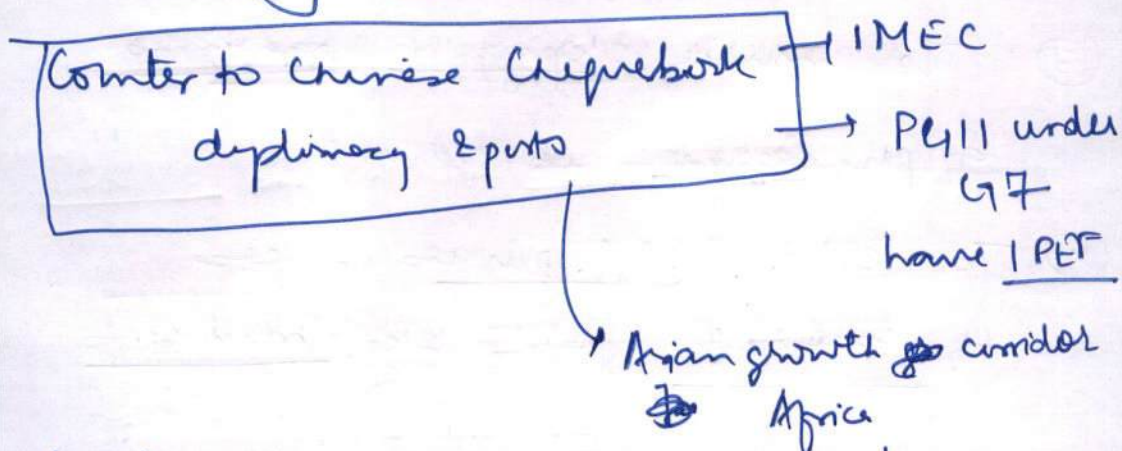 Counter to Chinese Chequebook
diplomacy & ports
IMEC
PGII under
G7
have IPEF
Asian growth corridor
Africa